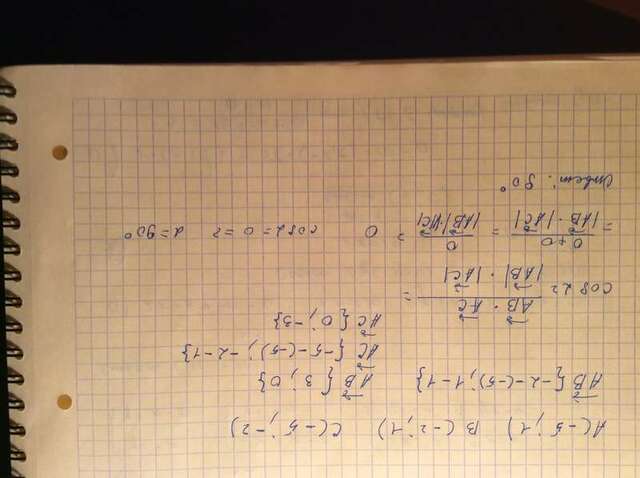 A(-5; 1) B(-2; 1) C(-5; -2)
AB {-2-(-5); 1-1}
AB {3; 0}
AC {-5-(-5); -2-1}
AC {0; -3}
cos α = AB · AC / |AB| · |AC| =
= 0+0 / |AB| · |AC| = 0 / |AB| · |AC| = 0 cos α = 0 => α = 90°
Ответ: 90°